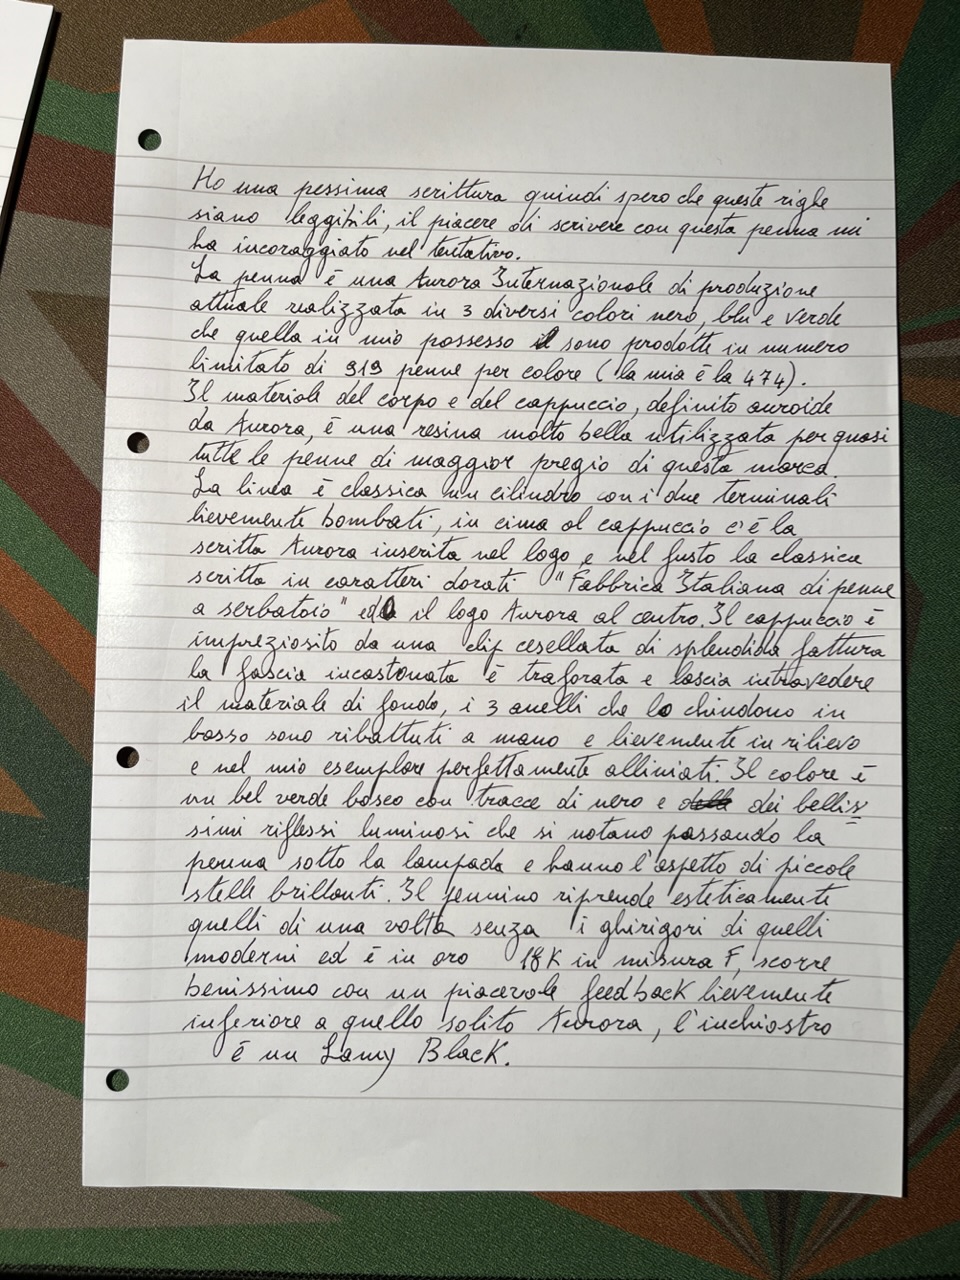 Ho una pessima scrittura quindi spero che queste righe
siano leggibili, il piacere di scrivere con questa penna mi
ha incoraggiato nel tentativo.
La penna è una Aurora Internazionale di produzione
attuale realizzata in 3 diversi colori nero, blu e verde
che quella in mio possesso sono prodotte in numero
limitato di 919 penne per colore (la mia è la 474).
Il materiale del corpo e del cappuccio, definito auroide
da Aurora, è una resina molto bella utilizzata per quasi
tutte le penne di maggior pregio di questa marca.
La linea è classica un cilindro con i due terminali
lievemente bombati, in cima al cappuccio c'è la
scritta Aurora inserita nel logo e nel fusto la classica
scritta in caratteri dorati "Fabbrica Italiana di penne
a serbatoio" ed il logo Aurora al centro. Il cappuccio è
impreziosito da una clip cesellata di splendida fattura
la fascia incastonata è traforata e lascia intravedere
il materiale di fondo, i 3 anelli che lo chiudono in
basso sono ribattuti a mano e lievemente in rilievo
e nel mio esemplare perfettamente alliniati. Il colore è
un bel verde bosco con tracce di nero e dei bellis
simi riflessi luminosi che si notano passando la
penna sotto la lampada e hanno l'aspetto di piccole
stelle brillanti. Il pennino riprende esteticamente
quelli di una volta senza i ghirigori di quelli
moderni ed è in oro 18K in misura F, scorre
benissimo con un piacevole feedback lievemente
inferiore a quello solito Aurora, l'inchiostro
è un Lamy Black.